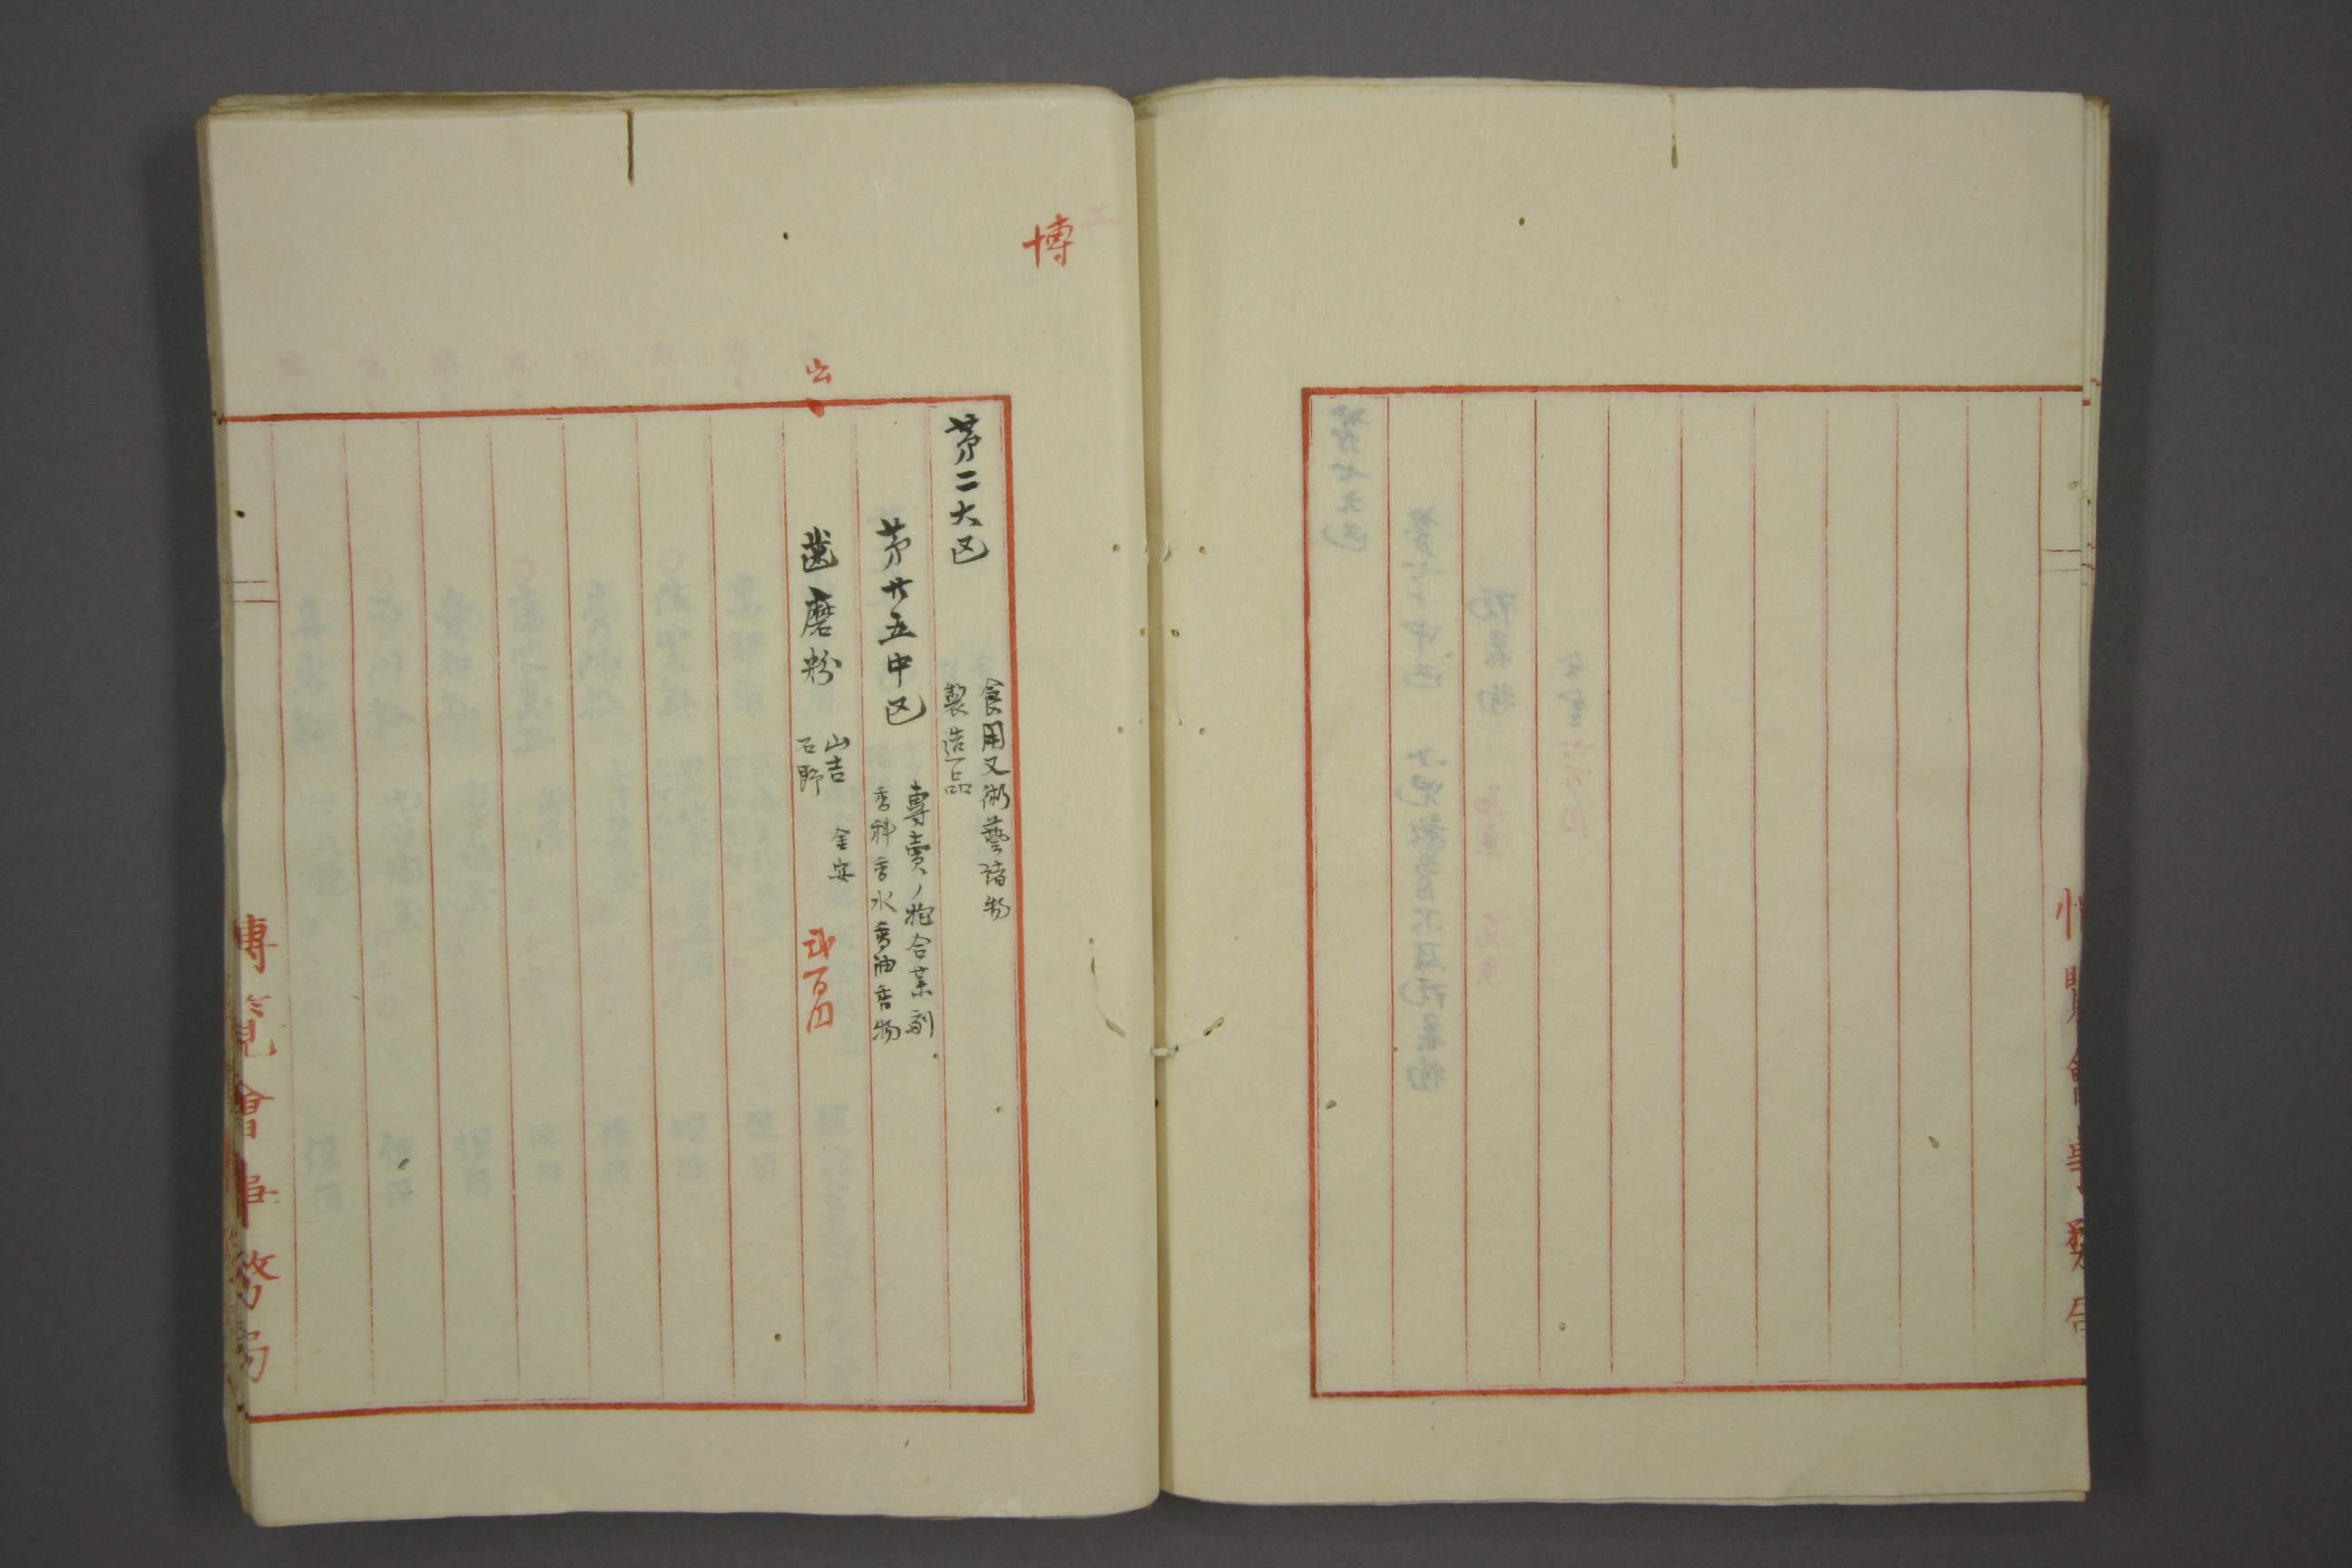 博
第二大区
食用又術藝諸物
製造品
第廿五中区
専賣ノ
合薬劑
香料香水香油香物
出
歯磨粉
山吉
石野
金安
弐百円
博覧會事務局